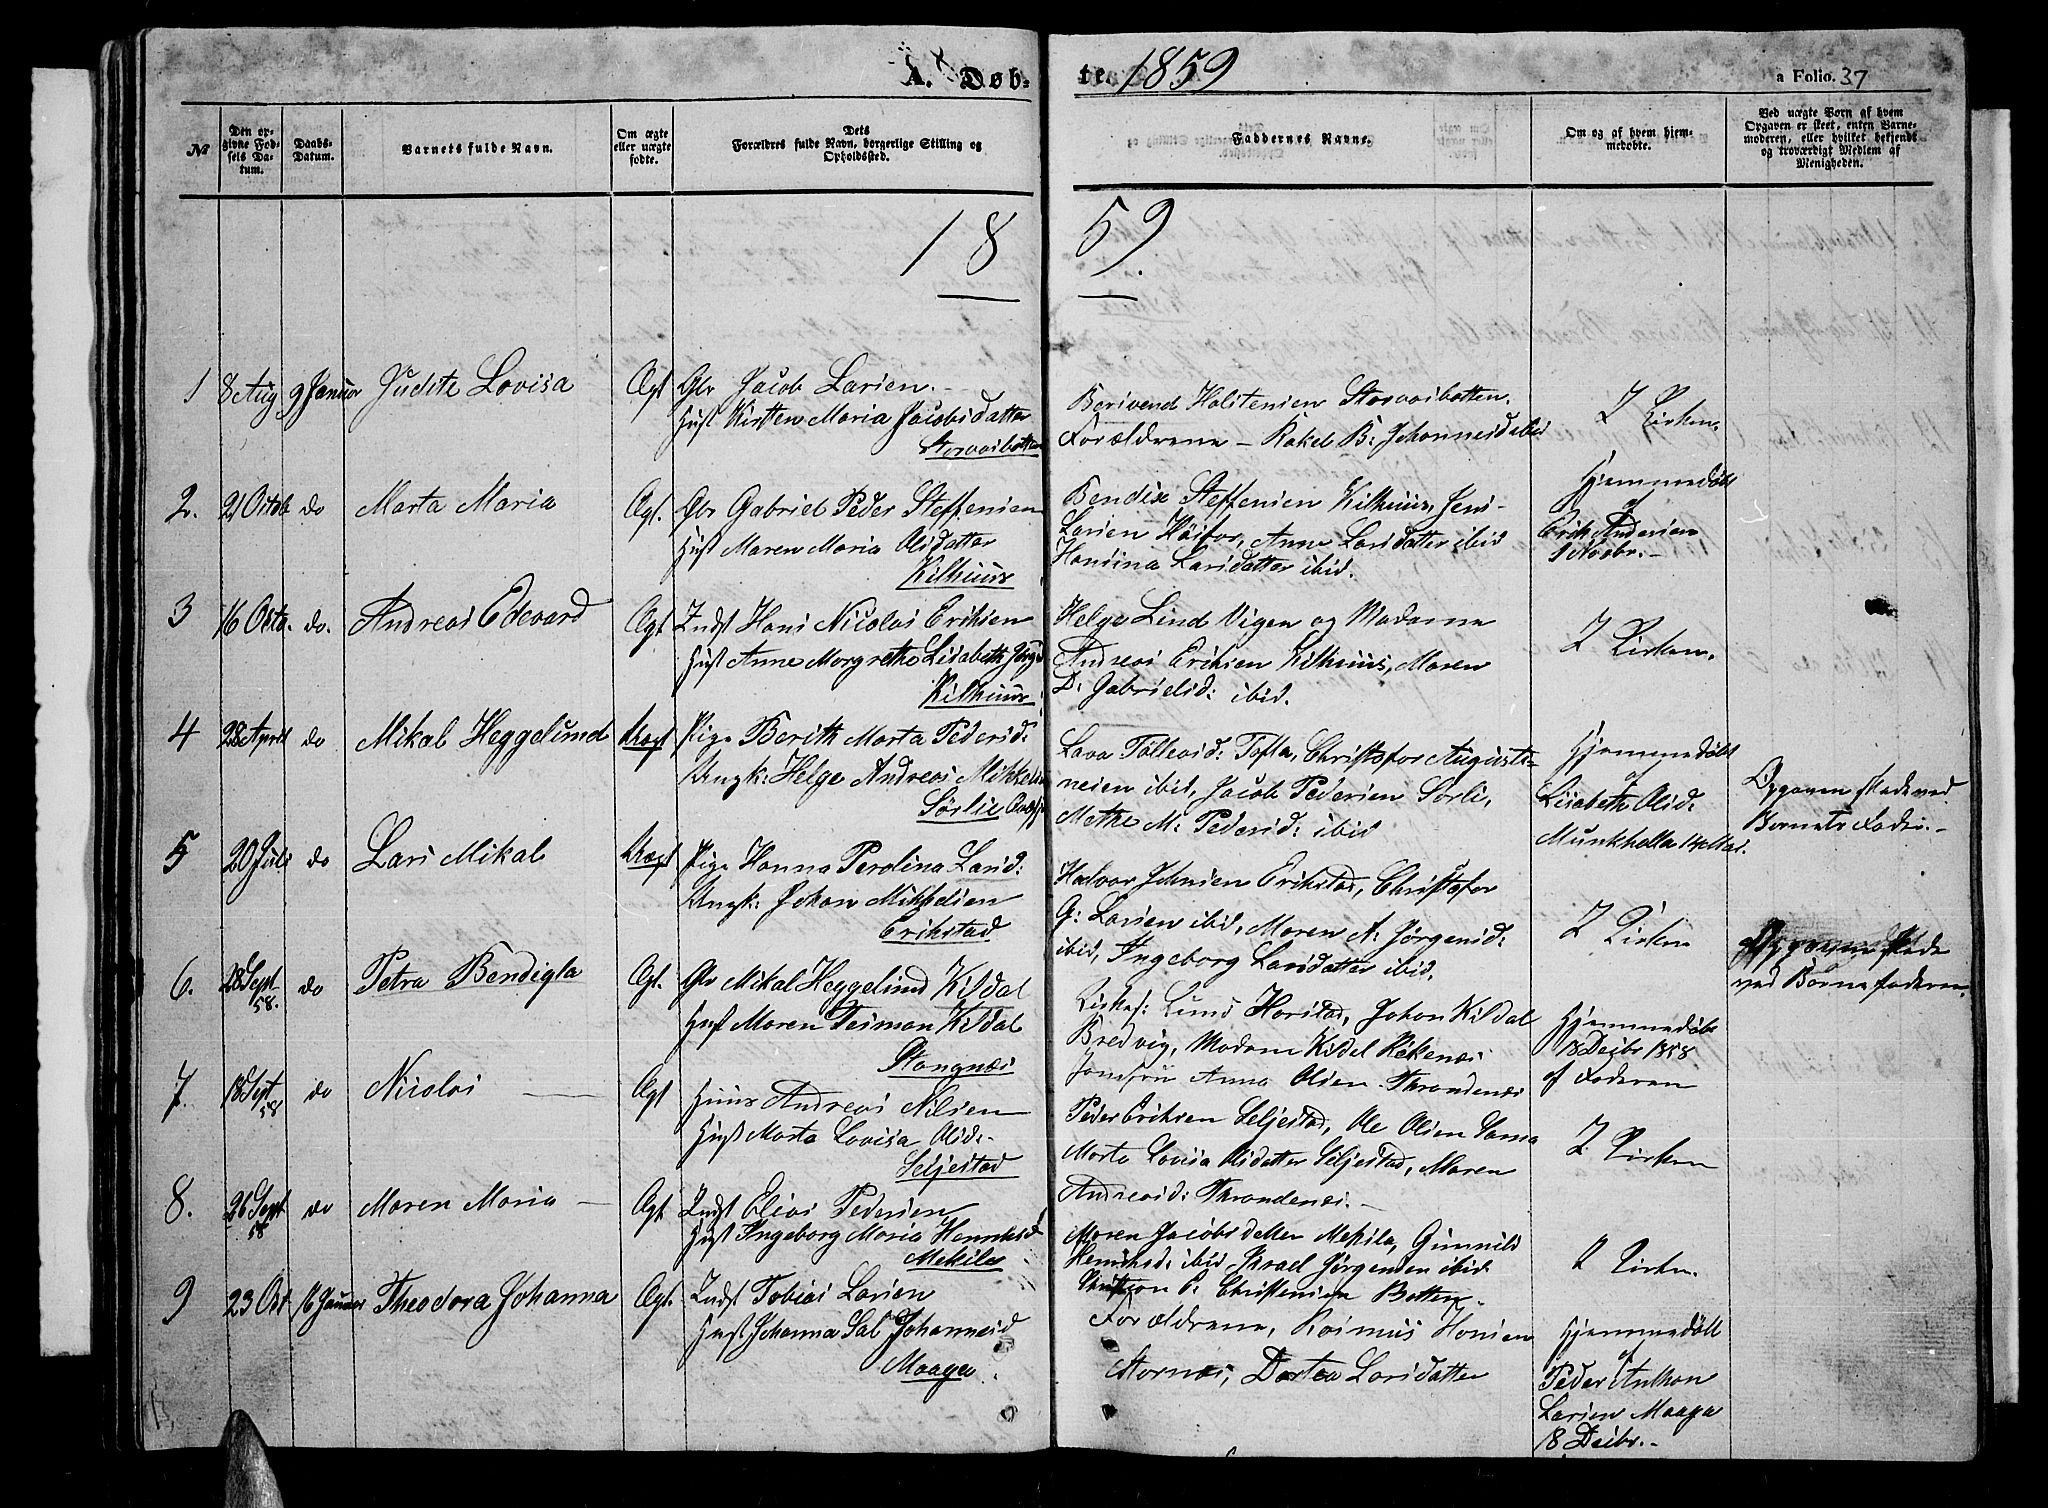 A. Døb-
te. 1859
a Folio. 37
№
Den opgivne Fødsels Datum.
Daabs-Datum.
Barnets fulde Navn.
Om ægte eller uægte fødte.
Dets Forældres fulde Navn, borgerlige Stilling og Opholdssted.
Faddernes Navne.
Om og af hvem hjemmedøbte.
Ved uægte Børn af hvem Opgaven er skeet, enten Barnemoderen, eller hvilket bekjendt og troværdigt Medlem af Menigheden.
18
59.
1 8 Aug 9 Januar Judete Lovisa Ægt Gbr Jacob Larsen.
Hust Kirsten Maria Jacobsdatter
Storvaibotten
Berivend Halstensen Storvaibotten.
Forældrene – Rakel B: Johannesd ibid
I Kirken.
2. 21 Octob do Marta Maria Ægt. Gbr Gabriel Peder Steffensen
Hust Maren Maria Olsdatter
Kilhuus
Bendix Steffensen Kilhuus, Jens
Larsen Höifor, Anne Larsdatter ibid
Hansina Larsdatter ibid.
Hjemmedøbt
af
Erik Andersen
1 Novbr.
3 16 Octo. do. Andreas Edevard Ægt Indst Hans Nicolai Eriksen
Hust Anne Margrethe Lisabeth Jørgd
Kilhuus
Helge Lind Vigen og Madame
Andreas Eriksen Kilhuus, Maren
D: Gabrielsd: ibid.
I Kirken.
4 28 April do Mikal Heggelund Uægt Pige Berith Marta Pedersd:
Ungk: Helge Andreas Mikkelsen
Sørlie
Lava Tollevsd: Tofta, Christofor Augusti-
nesen ibid, Jacob Pedersen Sørli,
Methe M: Pedersd: ibid
Hjemmedøbt
af
Lisabeth Olsd:
Munkhella 14 Mai.
Opgaven skede ved
Barnets Fader.
5 20 Juli do Lars Mikal Uægt Pige Hanna Perolina Larsd:
Ungk: Johan Mikkelsen
Erikstad
Halvor Johnsen Erikstad, Christofor
G: Larsen ibid, Maren A: Jørgensd:
ibid, Ingeborg Larsdatter ibid.
I Kirken
Opgaven skede
ved Barnefaderen.
6. 28 Sept 58. do Petra Bendigta Ægt. Gbr Mikal Heggelund Kildal
Hust Maren Kildal
Stangnæs
Lund Harstad, Johan Kildal
Bredvig, Madam Kildal Rekenæs
Jomfru Anna Olsen Throndenæs
Hjemmedøbt
18 Decbr 1858
af Faderen
7. 18 Sept 58 do Nicolai Ægt Huus Andreas Nilsen
Hust Marta Lovisa Olsd:
Seljestad
Peder Eriksen Seljestad, Ole Olsen Sama
Marta Lovisa Olsdatter Seljestad, Maren
Andreasd: Throndenæs.
I Kirken
8. 26 Sept 58 do Maren Maria Ægt Indst Elias Pedersen
Hust Ingeborg Maria Henriksd
Mekila
Maren Jacobsdatter Mekila, Gunnild
Henriksd: ibid Israel Jørgensen ibid
P: Christensen Botten.
I Kirken.
9 23 Oct 16 Januar Theodora Johanna Ægt. Indst Tobias Larsen
Hust Johanna Sal Johannesd
Maaga.
Forældrene, Rasmus Hansen
Stornæs, Dortea Larsdatter
Hjemmedøbt
af
Peder Anthon
Larsen Maaga
8 Decbr.